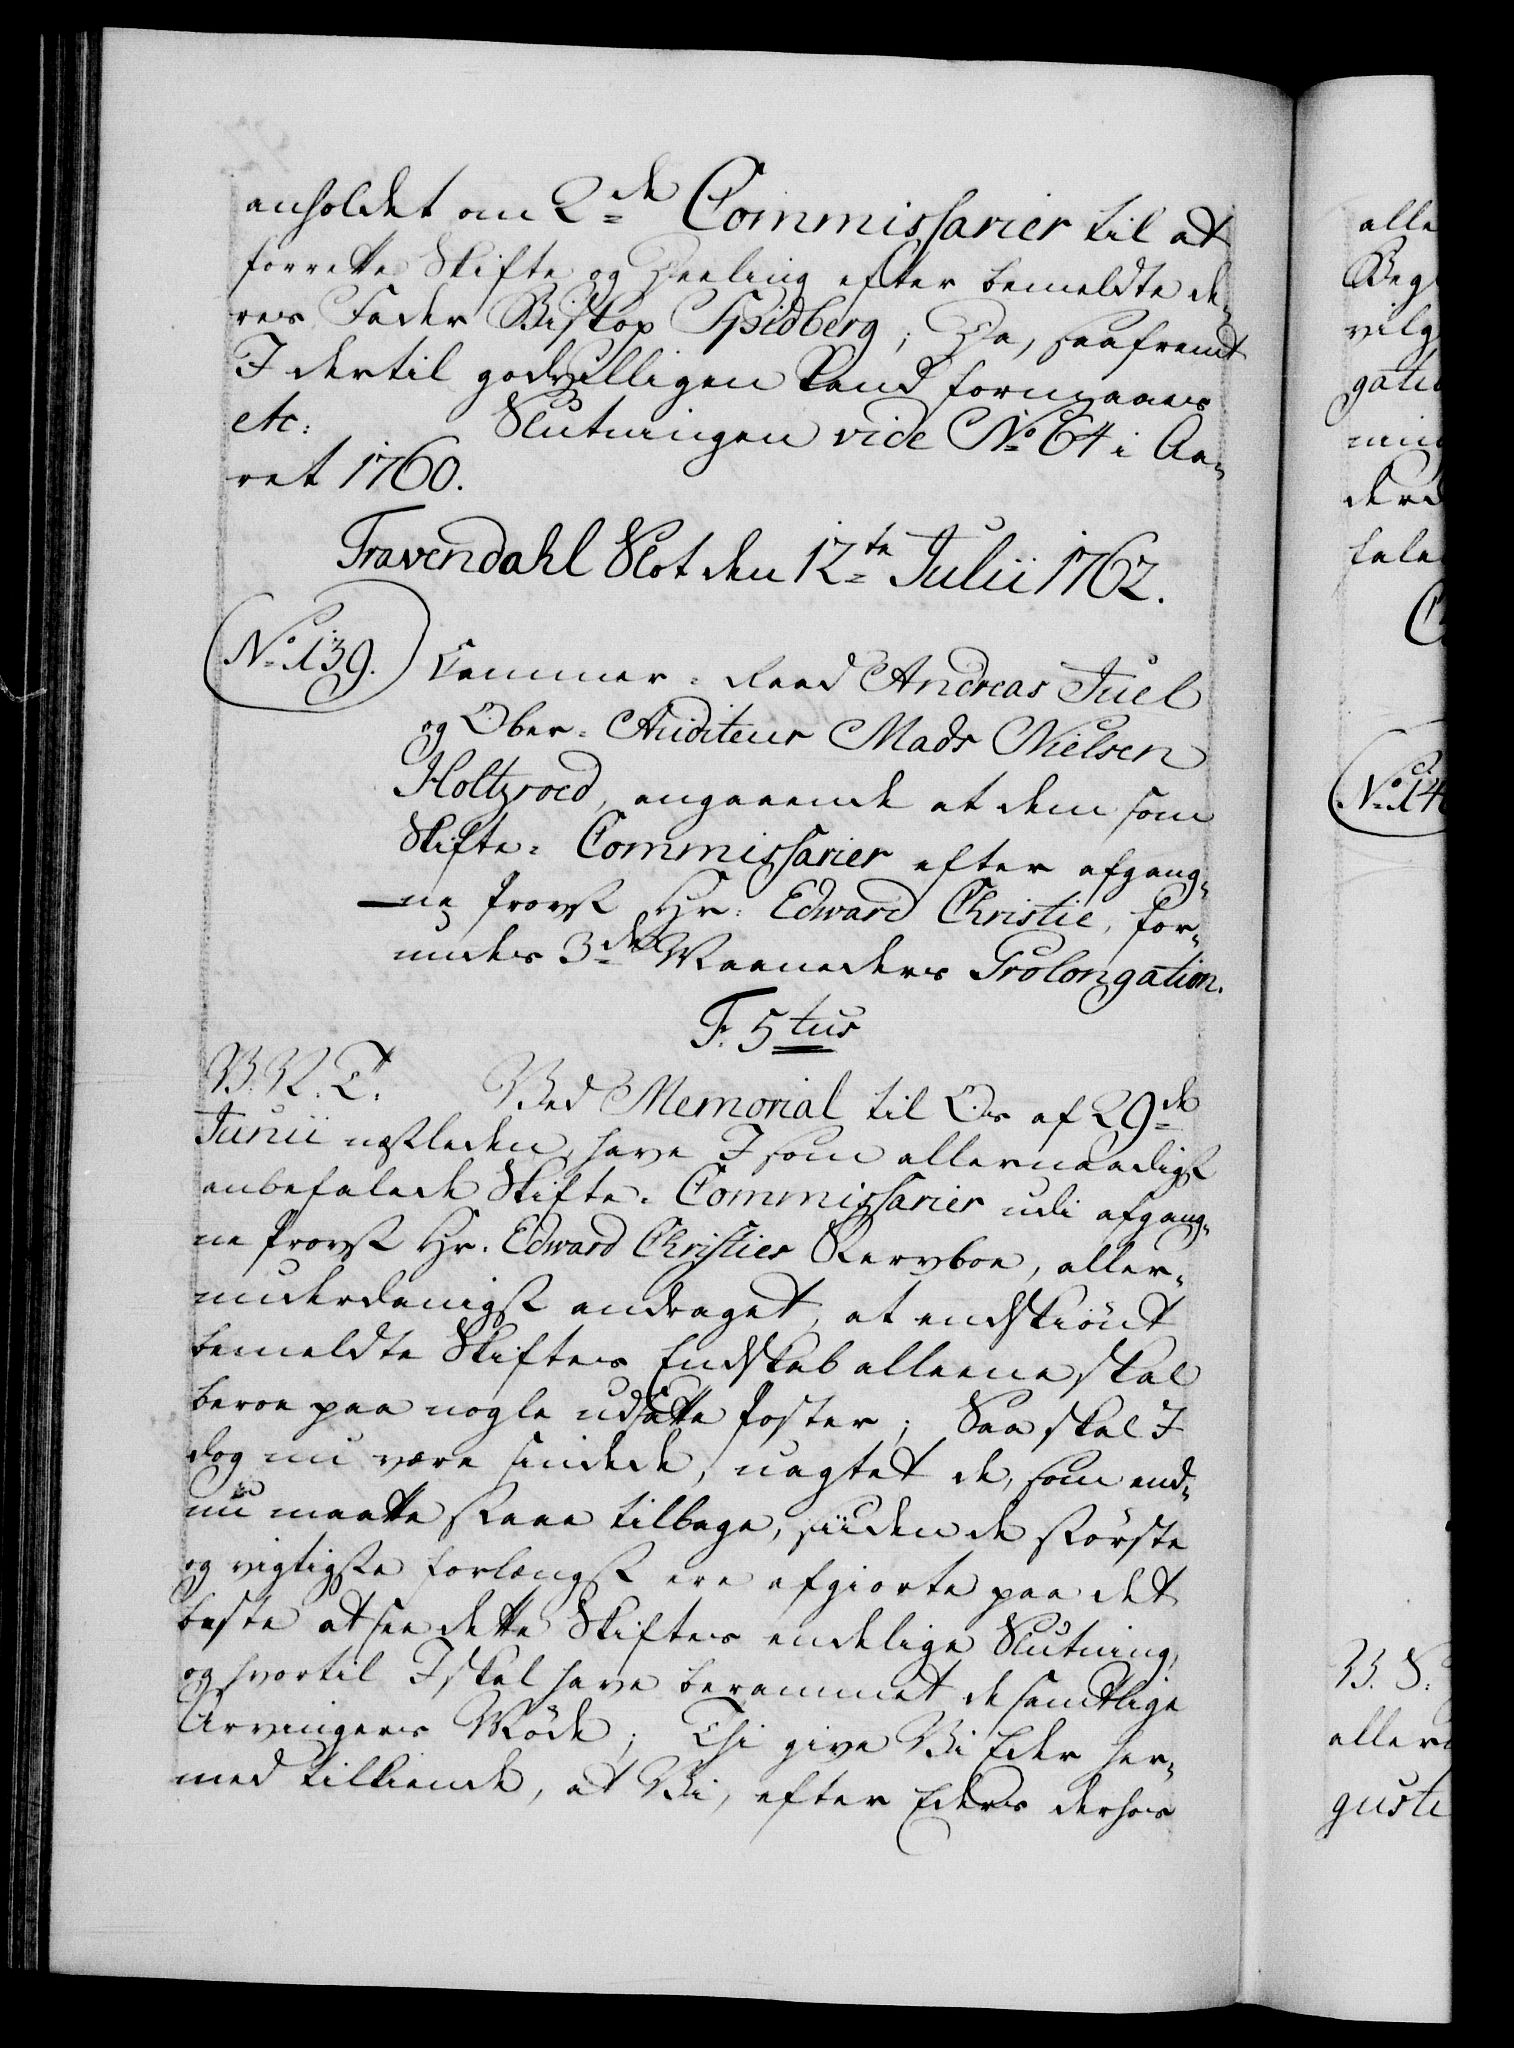 anholdet om 2de Commissarier til at
forrette Skifte og Deeling efter bemeldte de-
res Fader Biskop Spidberg; Da, saafremt
I dertil godvilligen kand formaaes
etc: Slutningen vide No 64 i Aa-
ret 1760.
Travendahl Slot den 12te Julii 1762.
No 139. Cammer-Raad Andreas Juel
og Ober-Auditeur Mads Nielsen
Holtzroed, angaaende at dem som
Skifte-Commissarier efter afgang-
ne Provst Hr: Edward Christie, for-
undes 3de Maaneders Prolongation.
F. 5tus
V. V. T. Ved Memorial til Os af 29de
Junii nestleden, have I som allernaadigst
anbefalede Skifte-Commissarier udi afgang-
ne Provst Hr. Edward Christies Stervboe, aller-
underdanigst andraget, at endskiönt
bemeldte Skiftes Endskab alleene skal
beroe paa nogle udsatte Poster; Saa skal I
dog nu være sindede, uagtet de, som end-
nu maatte staae tilbage, siiden de störste
og vigtigste forlængst ere afgiorte paa det
beste at see dette Skiftes endelige Slutning,
og hvortil I skal have berammet de samtlige
Arvingers Möde; Thi give Vi Eder her-
med tilkiende, at Vi, efter Eders derhos
alle
Beg
vilg
gati
ning
derd
fale
No 14
V. S.
aller
gusti